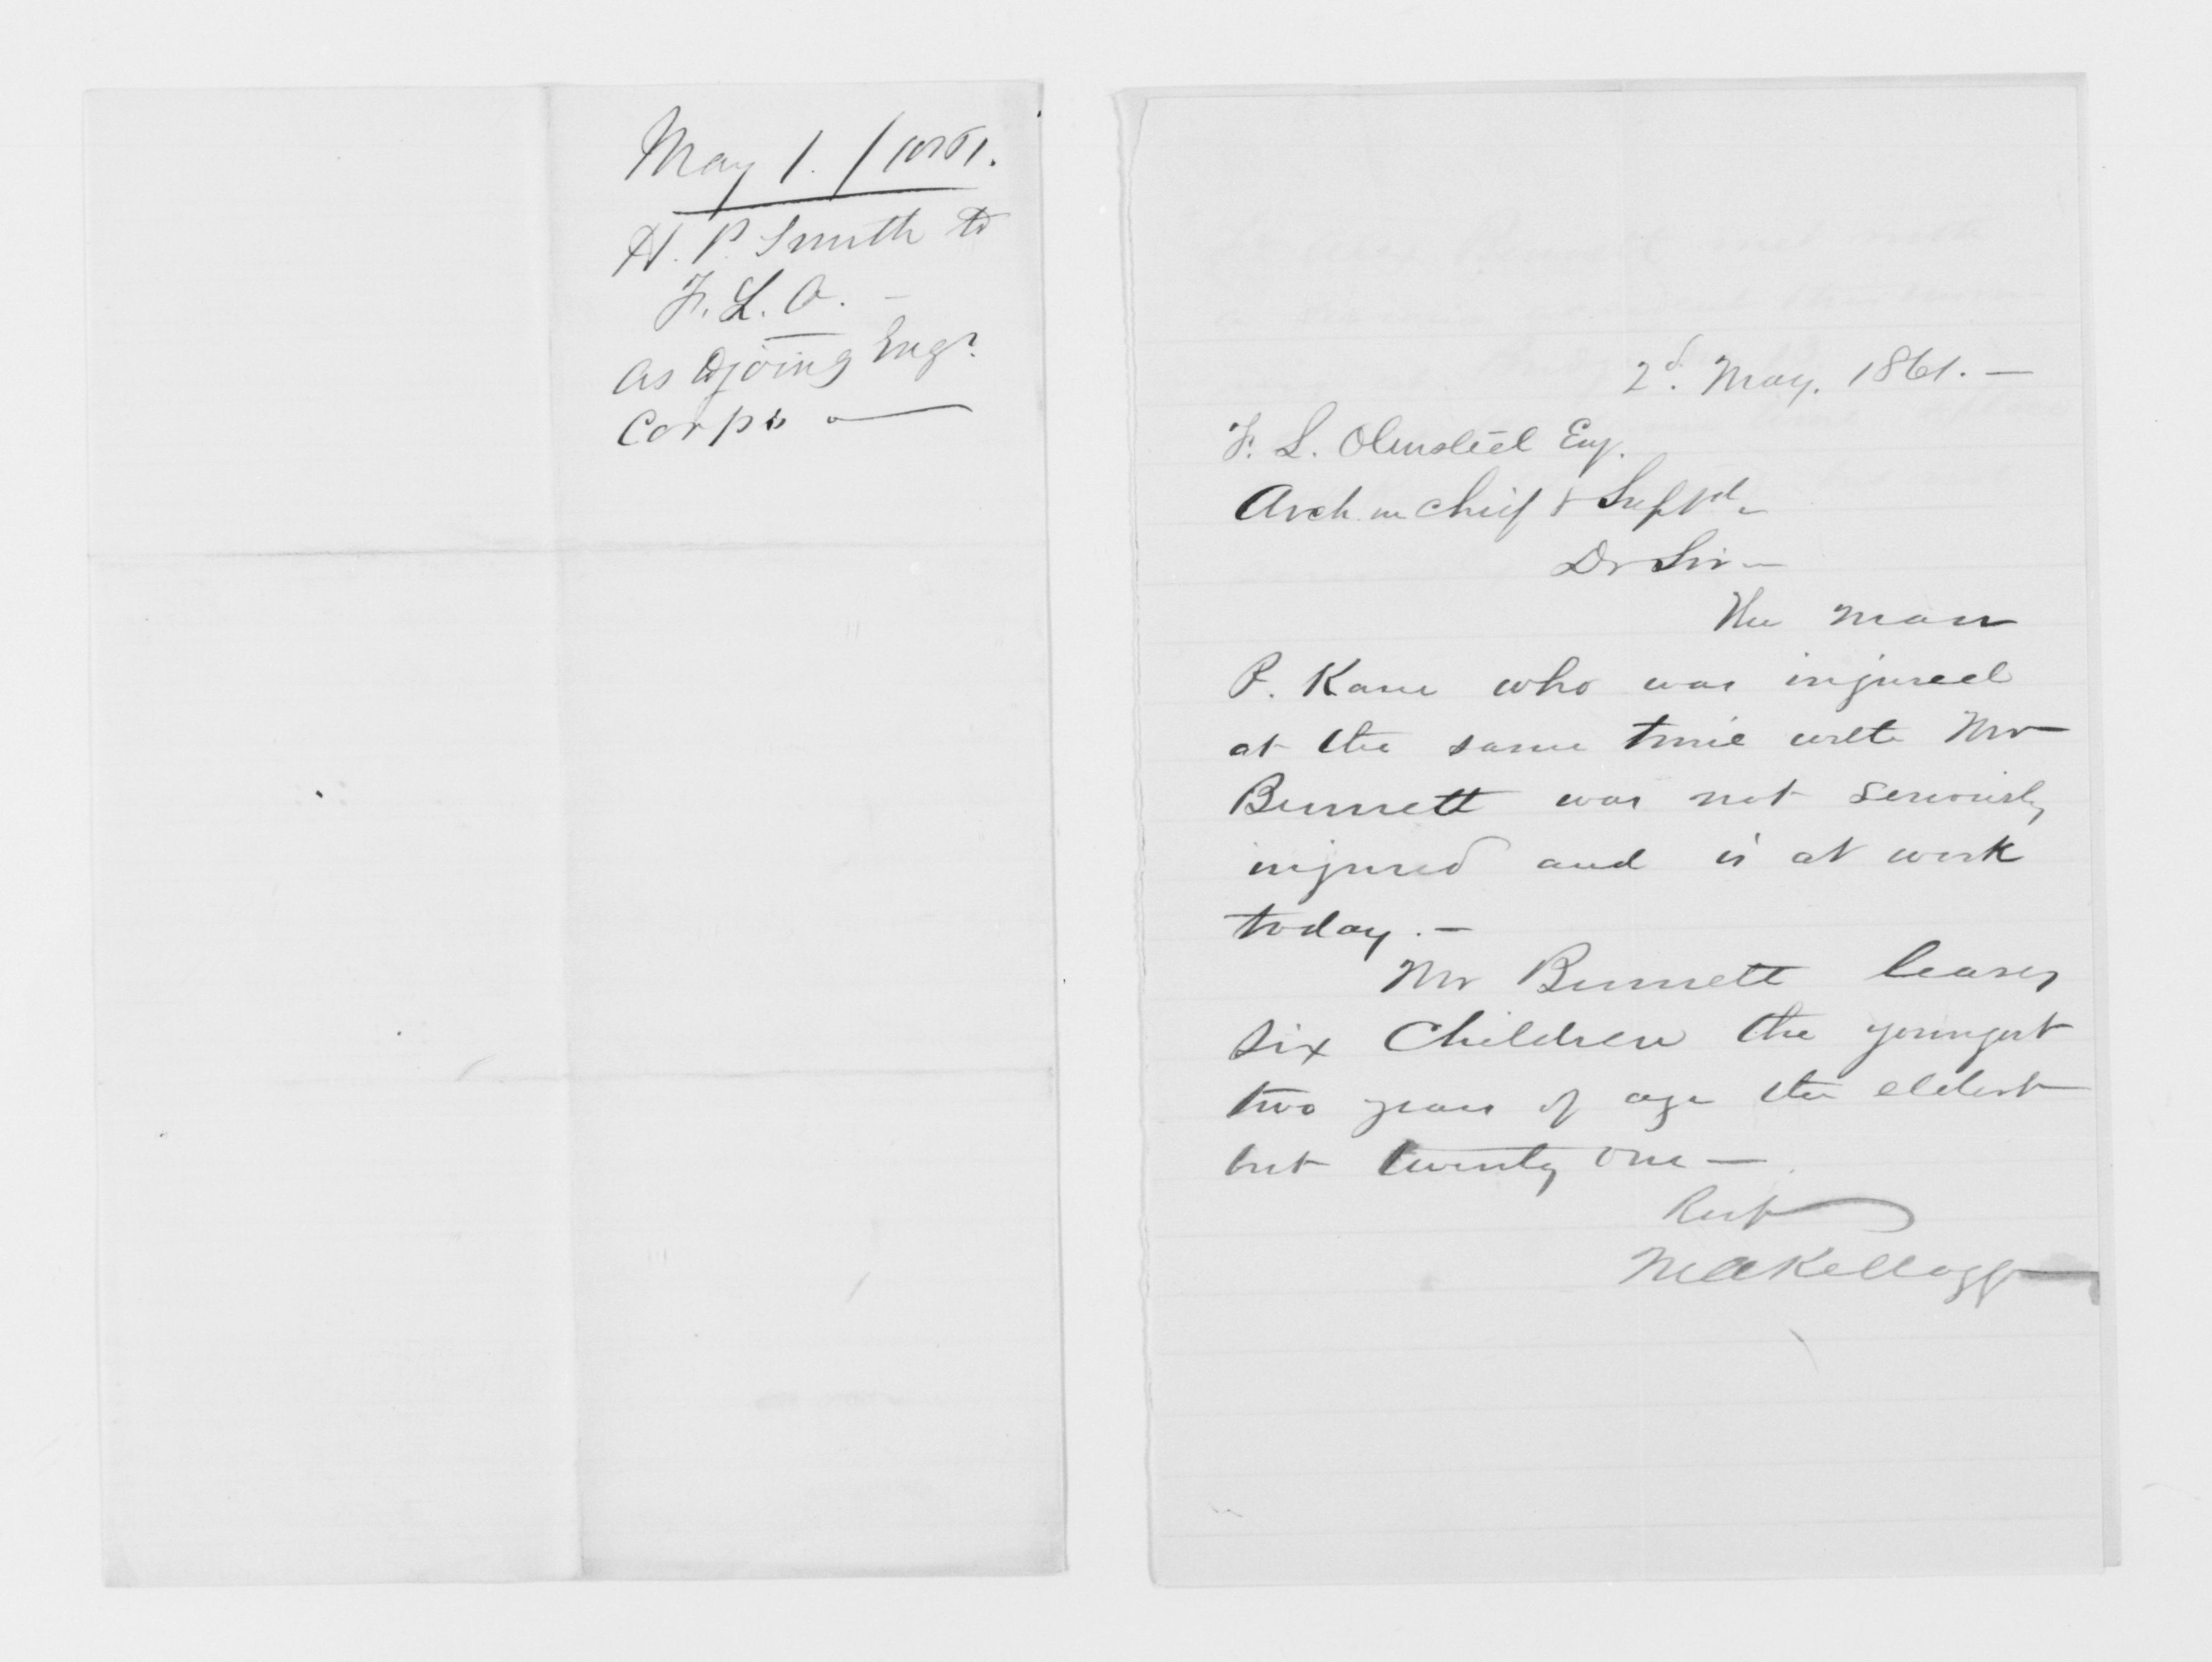 May 1. / 1861.
H. P. Smith to
F. L. O. —
as djoing Engr.
Corps —
2d. May. 1861. —
F. L. Olmsted Esq.
Arch in chief & Supt
Dr Sir —
The man
P. Kane who was injured
at the same time with Mr
Bennett was not seriously
injured and is at work
today. —
Mr Bennett leaves
six Children the youngest
two years of age the eldest
but twenty one —
Resp
M A Kellogg